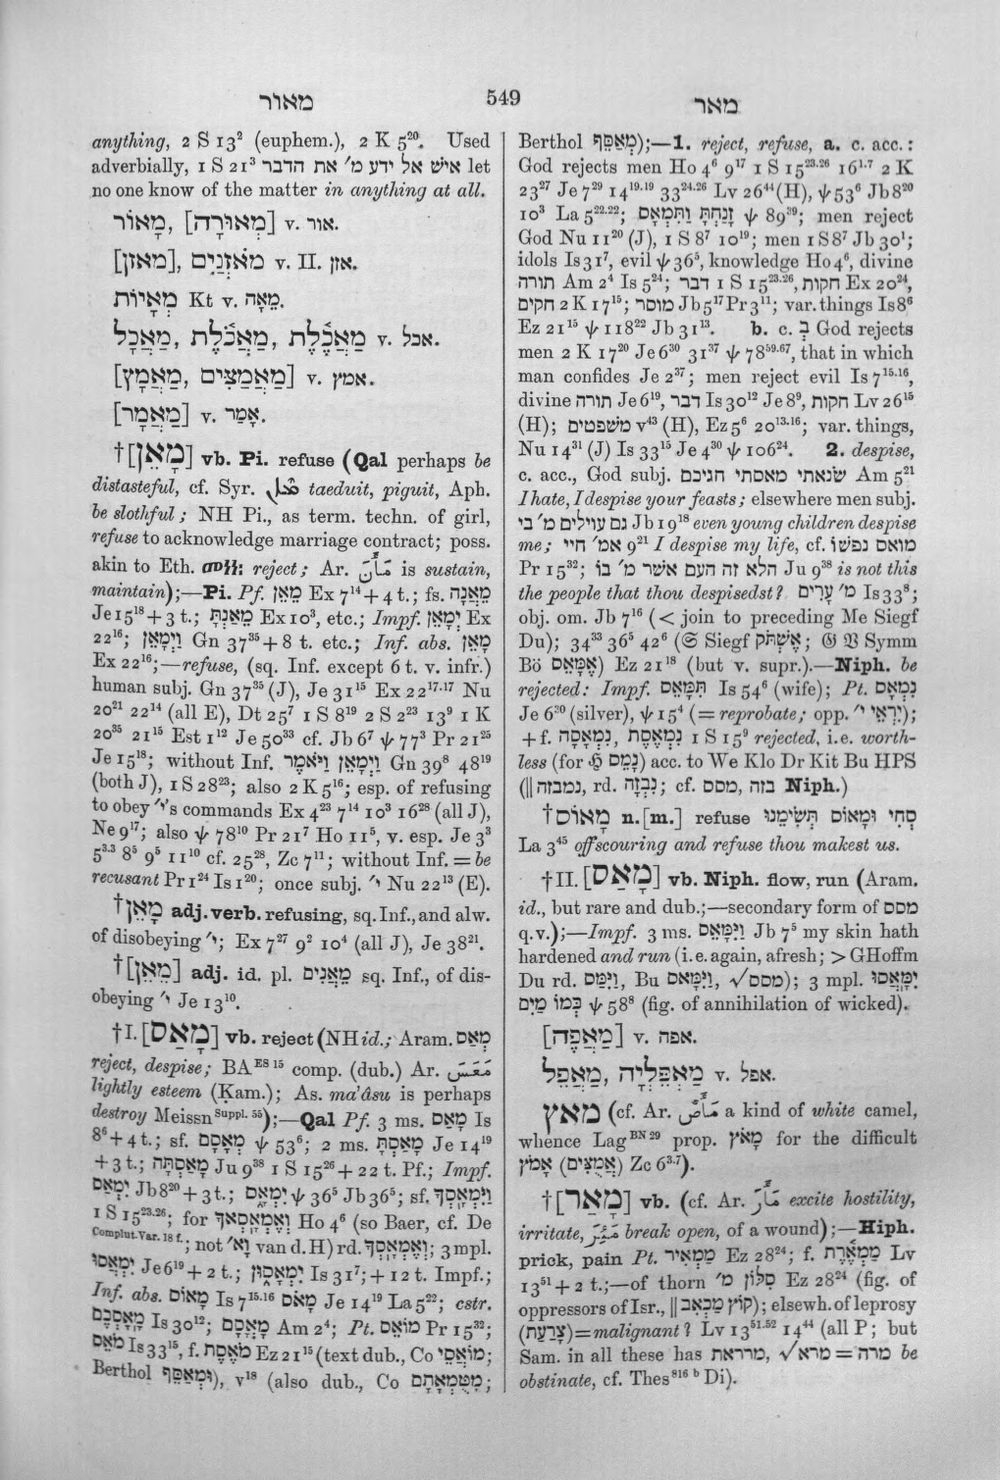 מאור
549
מאר
anything, 2 S 13² (euphem.), 2 K 5²⁰. Used
adverbially, 1 S 21³ איש אל ידע מ׳ את הדבר let
no one know of the matter in anything at all.
מָאוֹר, [מְאוּרָה] v. אור.
[מאזן], מֹאזְנַיִם v. II. אזן.
מְאָיוֹת Kt v. מֵאָה.
מַאֲכָל, מַאֲכֹלֶת, מַאֲכֶלֶת v. אכל.
[מַאֲמָץ, מַאֲמַצִּים] v. אמץ.
[מַאֲמָר] v. אָמַר.
†[מָאֵן] vb. Pi. refuse (Qal perhaps be
distasteful, cf. Syr. taeduit, piguit, Aph.
be slothful; NH Pi., as term. techn. of girl,
refuse to acknowledge marriage contract; poss.
akin to Eth. reject; Ar. مَأَنَ is sustain,
maintain);—Pi. Pf. מֵאֵן Ex 7¹⁴+4 t.; fs. מֵאֲנָה
Je 15¹⁸+3 t.; מֵאַנְתָּ Ex 10³, etc.; Impf. יְמָאֵן Ex
22¹⁶; וַיְמָאֵן Gn 37³⁵+8 t. etc.; Inf. abs. מָאֵן
Ex 22¹⁶;—refuse, (sq. Inf. except 6 t. v. infr.)
human subj. Gn 37³⁵ (J), Je 31¹⁵ Ex 22¹⁷·¹⁷ Nu
20²¹ 22¹⁴ (all E), Dt 25⁷ 1 S 8¹⁹ 2 S 2²³ 13⁹ 1 K
20³⁵ 21¹⁵ Est 1¹² Je 50³³ cf. Jb 6⁷ ψ 77³ Pr 21²⁵
Je 15¹⁸; without Inf. וַיְמָאֵן וַיֹּאמֶר Gn 39⁸ 48¹⁹
(both J), 1 S 28²³; also 2 K 5¹⁶; esp. of refusing
to obey י׳'s commands Ex 4²³ 7¹⁴ 10³ 16²⁸ (all J),
Ne 9¹⁷; also ψ 78¹⁰ Pr 21⁷ Ho 11⁵, v. esp. Je 3³
5³·³ 8⁵ 9⁵ 11¹⁰ cf. 25²⁸, Zc 7¹¹; without Inf. = be
recusant Pr 1²⁴ Is 1²⁰; once subj. י׳ Nu 22¹³ (E).
†מָאֵן adj. verb. refusing, sq. Inf., and alw.
of disobeying י׳; Ex 7²⁷ 9² 10⁴ (all J), Je 38²¹.
†[מֵאֵן] adj. id. pl. מֵאֲנִים sq. Inf., of dis-
obeying י׳ Je 13¹⁰.
†I. [מָאַס] vb. reject (NH id.; Aram. מְאַס
reject, despise; BA ᴱˢ ¹⁵ comp. (dub.) Ar. مَعَسَ
lightly esteem (Kam.); As. ma'âsu is perhaps
destroy Meissn Suppl. 55);—Qal Pf. 3 ms. מָאַס Is
8⁶+4 t.; sf. מְאָסָם ψ 53⁶; 2 ms. מָאַסְתָּ Je 14¹⁹
+3 t.; מָאַסְתָּה Ju 9³⁸ 1 S 15²⁶+22 t. Pf.; Impf.
יִמְאַס Jb 8²⁰+3 t.; יִמְאָס ψ 36⁵ Jb 36⁵; sf. וַיִּמְאָסְךָ
1 S 15²³·²⁶; for וְאֶמְאָסְאךָ Ho 4⁶ (so Baer, cf. De
Complut. Var. 18 f.; not וָא׳ van d. H) rd. וְאֶמְאָסְךָ; 3 mpl.
יִמְאֲסוּ Je 6¹⁹+2 t.; יִמְאָסוּן Is 31⁷; +12 t. Impf.;
Inf. abs. מָאוֹס Is 7¹⁵·¹⁶ מָאֹס Je 14¹⁹ La 5²²; cstr.
מָאָסְכֶם Is 30¹²; מָאֳסָם Am 2⁴; Pt. מוֹאֵס Pr 15³²;
מֹאֵס Is 33¹⁵, f. מֹאֶסֶת Ez 21¹⁵ (text dub., Co מוֹאֲסֵי;
Berthol וּמְאַסֵּף), v¹⁸ (also dub., Co מִטֻּמְאָתָם;
Berthol מְאַסֵּף);—1. reject, refuse, a. c. acc.:
God rejects men Ho 4⁶ 9¹⁷ 1 S 15²³·²⁶ 16¹·⁷ 2 K
23²⁷ Je 7²⁹ 14¹⁹·¹⁹ 33²⁴·²⁶ Lv 26⁴⁴ (H), ψ 53⁶ Jb 8²⁰
10³ La 5²²·²²; זָנַחְתָּ וַתִּמְאָס ψ 89³⁹; men reject
God Nu 11²⁰ (J), 1 S 8⁷ 10¹⁹; men 1 S 8⁷ Jb 30¹;
idols Is 31⁷, evil ψ 36⁵, knowledge Ho 4⁶, divine
תורה Am 2⁴ Is 5²⁴; דבר 1 S 15²³·²⁶, חקות Ex 20²⁴,
חקים 2 K 17¹⁵; מוסר Jb 5¹⁷ Pr 3¹¹; var. things Is 8⁶
Ez 21¹⁵ ψ 118²² Jb 31¹³. b. c. בְּ God rejects
men 2 K 17²⁰ Je 6³⁰ 31³⁷ ψ 78⁵⁹·⁶⁷, that in which
man confides Je 2³⁷; men reject evil Is 7¹⁵·¹⁶,
divine תורה Je 6¹⁹, דבר Is 30¹² Je 8⁹, חקות Lv 26¹⁵
(H); משפטים v⁴³ (H), Ez 5⁶ 20¹³·¹⁶; var. things,
Nu 14³¹ (J) Is 33¹⁵ Je 4³⁰ ψ 106²⁴. 2. despise,
c. acc., God subj. שנאתי מאסתי חגיכם Am 5²¹
I hate, I despise your feasts; elsewhere men subj.
גם עוילים מ׳ בי Jb 19¹⁸ even young children despise
me; אמ׳ חיי 9²¹ I despise my life, cf. מואס נפשו
Pr 15³²; הלא זה העם אשר מ׳ בו Ju 9³⁸ is not this
the people that thou despisedst? מ׳ עָרִים Is 33⁸;
obj. om. Jb 7¹⁶ (< join to preceding Me Siegf
Du); 34³³ 36⁵ 42⁶ (𝔖 Siegf אֶשְׁתֹּק; 𝔊 𝔙 Symm
Bö אֶמָּאֵס) Ez 21¹⁸ (but v. supr.).—Niph. be
rejected: Impf. תִּמָּאֵס Is 54⁶ (wife); Pt. נִמְאָס
Je 6³⁰ (silver), ψ 15⁴ (= reprobate; opp. יִרְאֵי י׳);
+ f. נְמִבְזָה וְנָמֵס 1 S 15⁹ rejected, i.e. worth-
less (for 𝔥 נָמֵס) acc. to We Klo Dr Kit Bu HPS
(‖ נמבזה, rd. נִבְזָה; cf. מסס, בזה Niph.)
†מָאוֹס n.[m.] refuse סְחִי וּמָאוֹס תְּשִׂימֵנוּ
La 3⁴⁵ offscouring and refuse thou makest us.
†II. [מָאַס] vb. Niph. flow, run (Aram.
id., but rare and dub.;—secondary form of מסס
q.v.);—Impf. 3 ms. וַיִּמָּאֵס Jb 7⁵ my skin hath
hardened and run (i.e. again, afresh; > GHoffm
Du rd. וַיִּמַּס, Bu וַיִּמָּאֵס, √מסס); 3 mpl. יִמָּאֲסוּ
כְמוֹ מַיִם ψ 58⁸ (fig. of annihilation of wicked).
[מַאֲפֶה] v. אפה.
מַאֲפֵל, מַאְפֵּלְיָה v. אפל.
מאץ (cf. Ar. مَأَصٌ a kind of white camel,
whence Lag ᴮᴺ ²⁹ prop. מָאֹץ for the difficult
אָמֹץ (אֲמֻצִּים) Zc 6³·⁷).
†[מָאַר] vb. (cf. Ar. مَأَرَ excite hostility,
irritate, مَئِرَ break open, of a wound);—Hiph.
prick, pain Pt. מַמְאִיר Ez 28²⁴; f. מַמְאֶרֶת Lv
13⁵¹+2 t.;—of thorn סִלּוֹן מ׳ Ez 28²⁴ (fig. of
oppressors of Isr., ‖ קוֹץ מַכְאִב); elsewh. of leprosy
(צָרַעַת)=malignant? Lv 13⁵¹·⁵² 14⁴⁴ (all P; but
Sam. in all these has ממראת, √מרא = מרה be
obstinate, cf. Thes ⁸¹⁶ ᵇ Di).